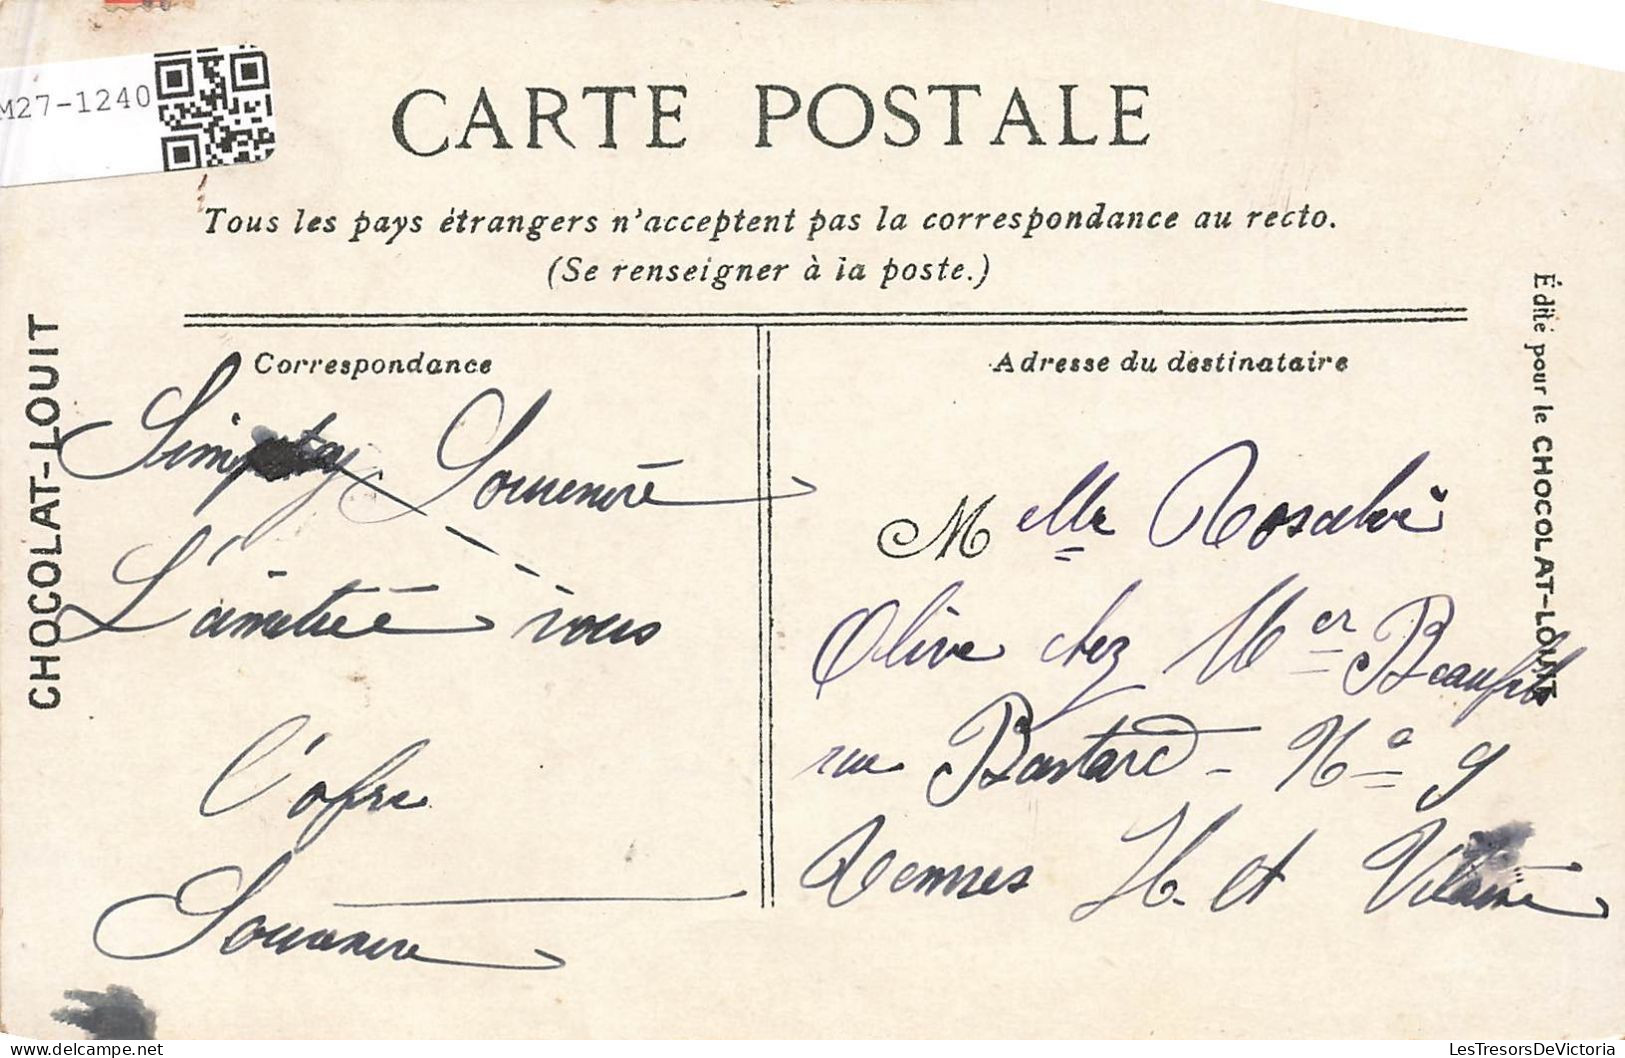 M27-1240
CARTE POSTALE
Tous les pays étrangers n'acceptent pas la correspondance au recto.
(Se renseigner à la poste.)
CHOCOLAT-LOUIT
Correspondance
Souvenire
L'amitié vous
l'ofre
Souvenire
Adresse du destinataire
Melle Rosalie
Olive chez Mer Beaufils
rue Bastard - No 9
Rennes I. et Vilaine
Édité pour le CHOCOLAT-LOUIT
LesTresorsDeVictoria